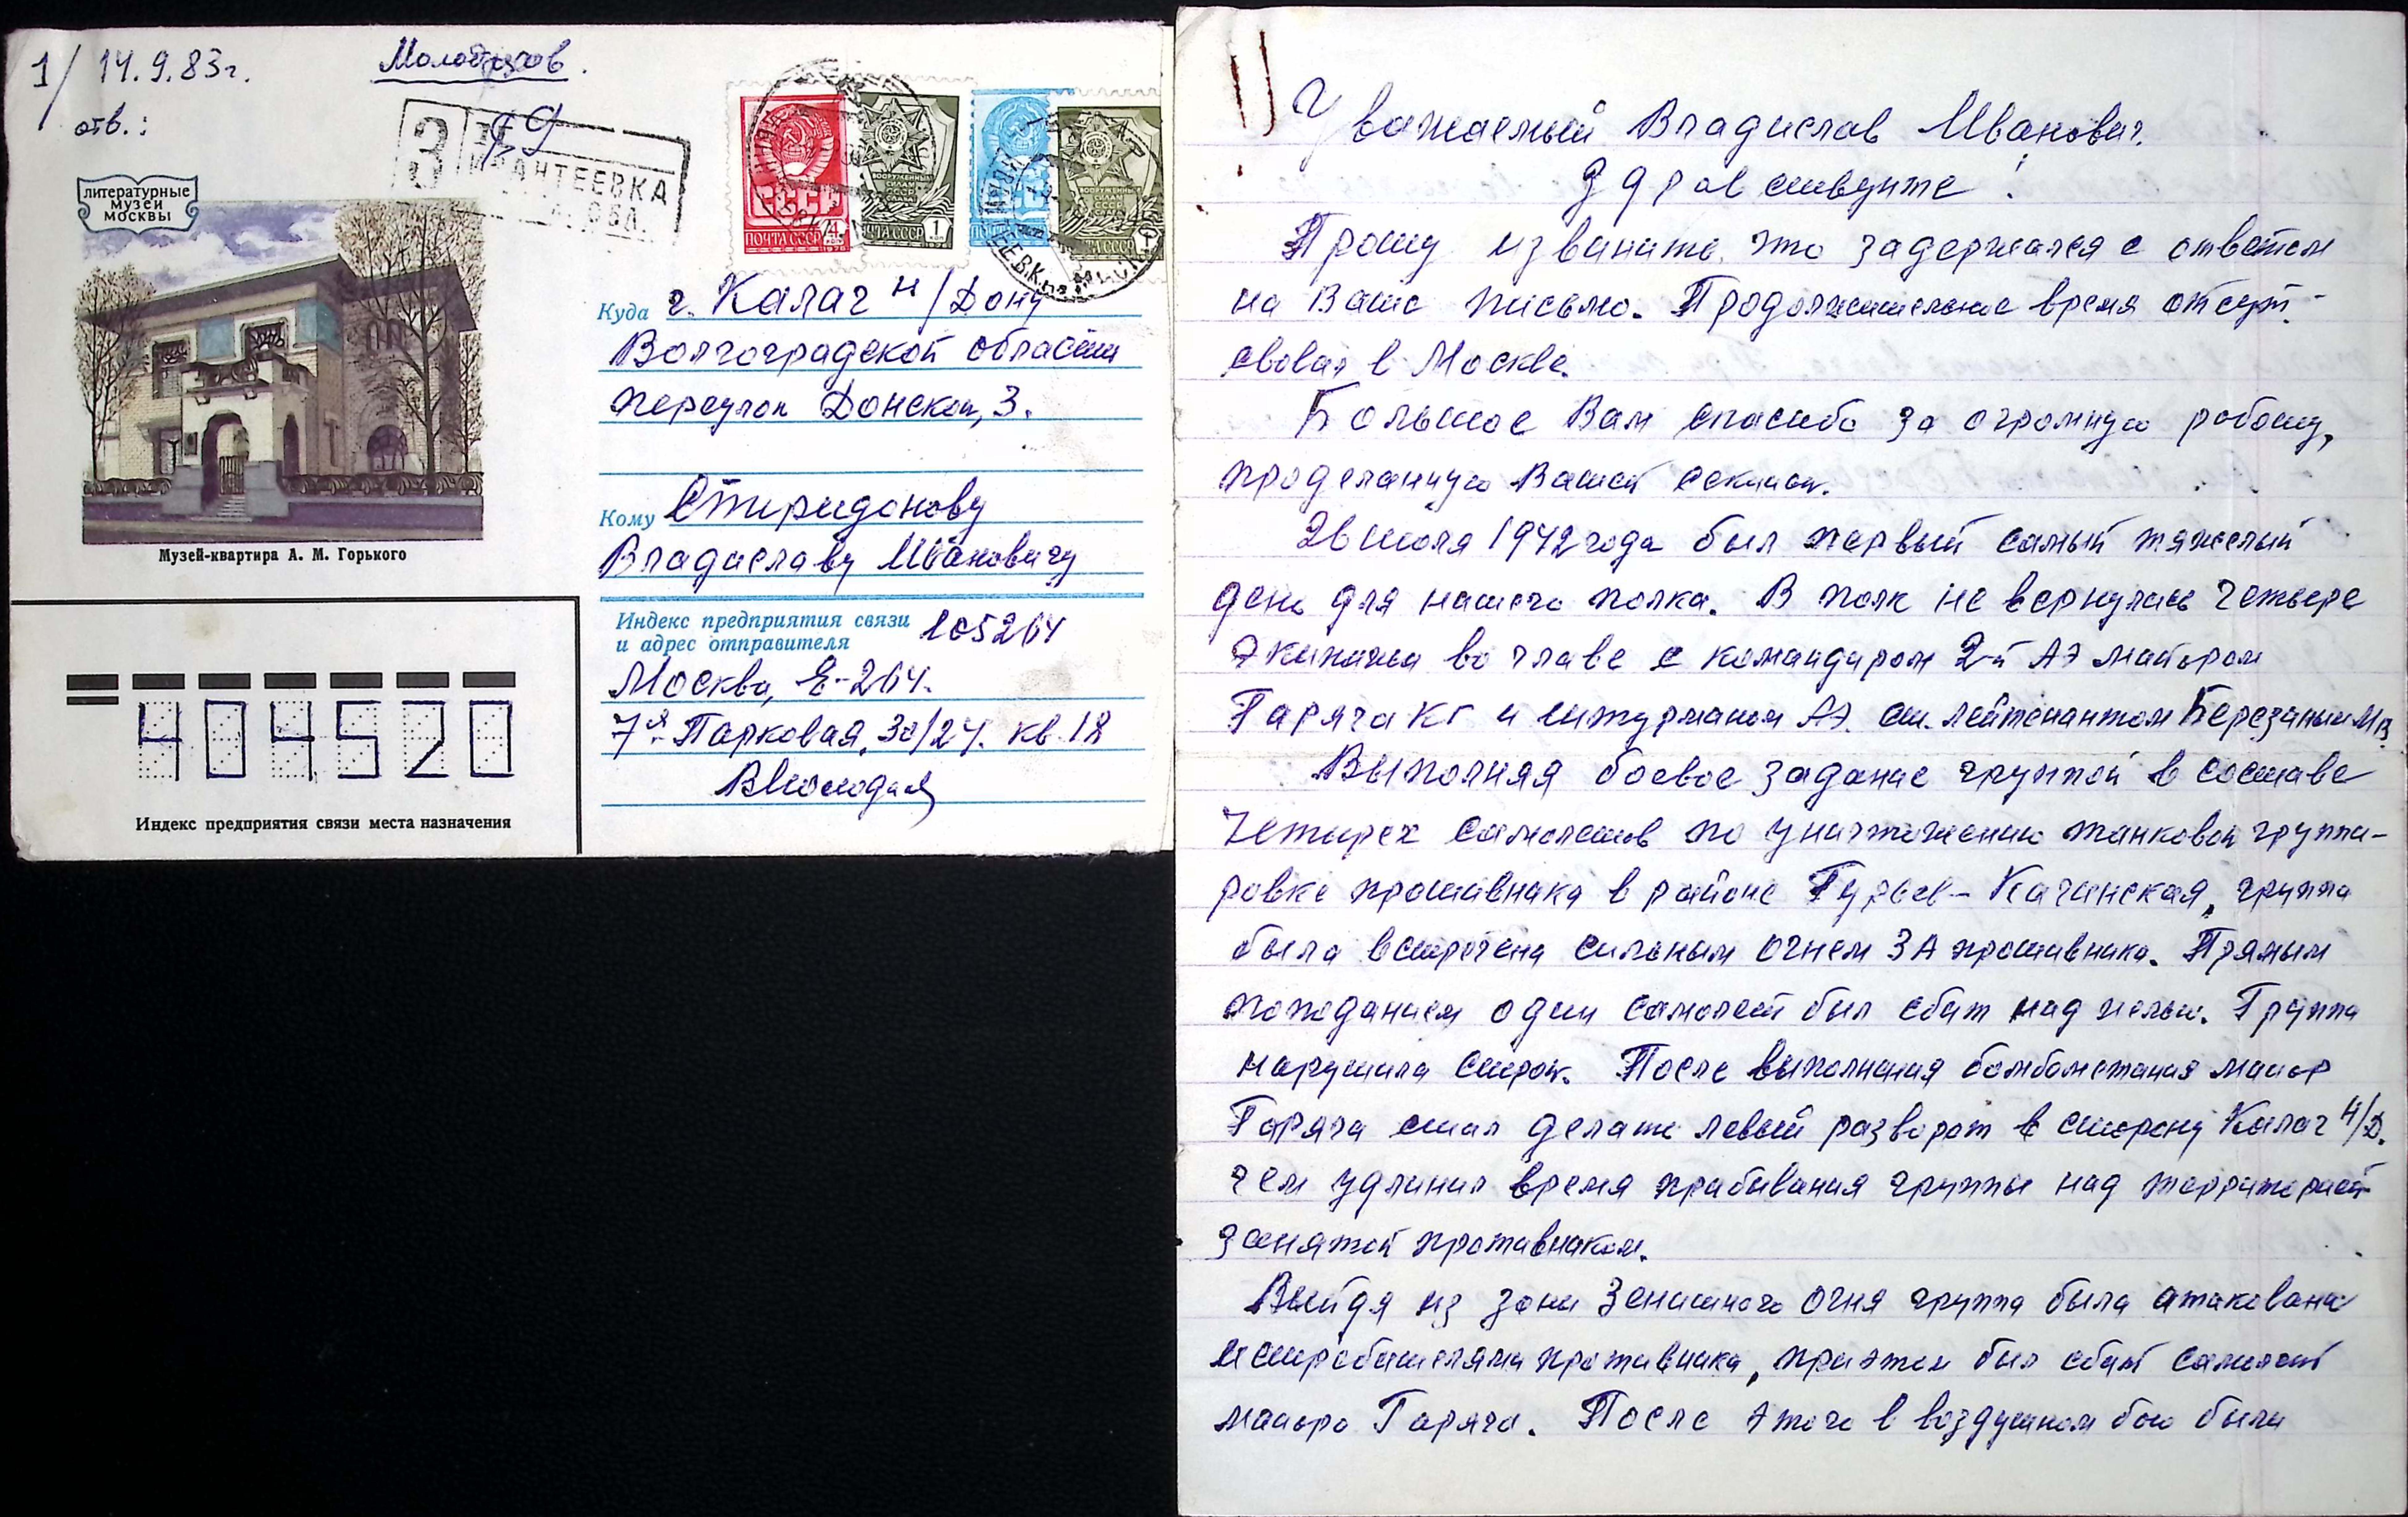 1/ 14.9.83г.
отв.:
З
ИВАНТЕЕВКА
ОБЛ.
литературные
музеи
москвы
Музей-квартира А. М. Горького
ПОЧТА СССР 4 коп
ВООРУЖЕННЫМ СИЛАМ СССР
ПОЧТА СССР 1 коп
Куда г. Калач н/Дону
Волгоградской области
переулок Донской, 3.
Кому Спиридонову
Владиславу Ивановичу
Индекс предприятия связи 105264
и адрес отправителя
Москва, Е-264.
7я Парковая, 30/24. кв. 18
404520
Индекс предприятия связи места назначения
Уважаемый Владислав Иванович.
Здравствуйте!
Прошу извинить, что задержался с ответом
на Ваше письмо. Продолжительное время отсут-
свовал в Москве.
Большое Вам спасибо за огромную работу,
проделанную Вашей секцией.
26 июля 1942 года был первый самый тяжелый
день для нашего полка. В полк не вернулись четыре
экипажа во главе с командиром 2-й АЭ майором
Гаряча КГ и штурманом АЭ. ст. лейтенантом Березаным МВ
Выполняя боевое задание группой в составе
четырех самолетов по уничтожению танковой группи-
ровке противника в районе Гурьев - Качинская, группа
была встречена сильным огнем ЗА противника. Прямым
попаданием один самолет был сбит над целью. Группа
нарушила строй. После выполнения бомбометания майор
Гаряча стал делать левый разворот в сторону Калач Н/Д.
чем удлинил время прибывания группы над территорией
занятой противником.
Выйдя из зоны зенитного огня группа была атакована
истребителями противника, приэтом был сбит самолет
майора Гаряча. После этого в воздушном бою были